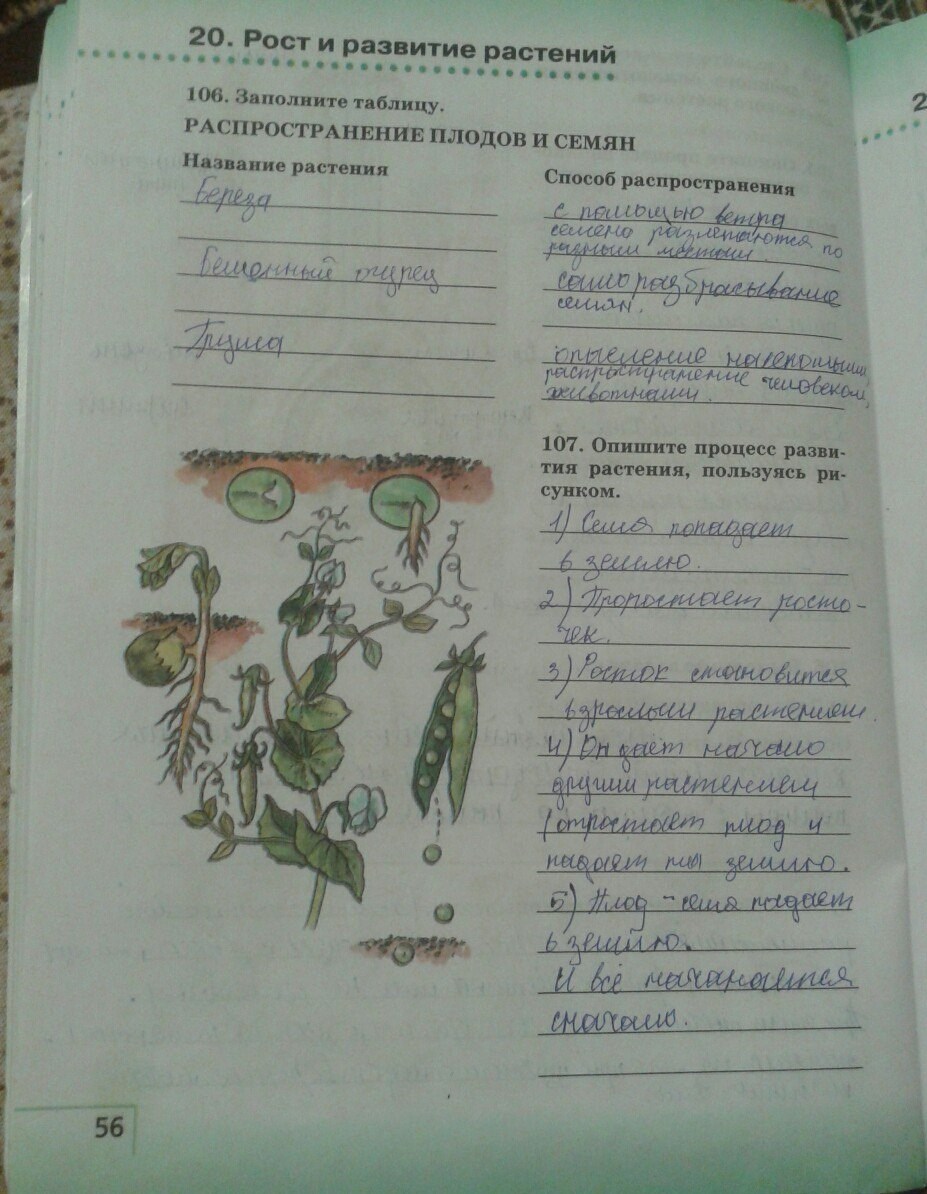 20. Рост и развитие растений
106. Заполните таблицу.
РАСПРОСТРАНЕНИЕ ПЛОДОВ И СЕМЯН
Название растения
Береза
Бешенный огурец
Груша
Способ распространения
с помощью ветра
семена разлетаются по
разным местам.
саморазбрасывание
семян.
опыление насекомыми,
распространение человеком,
животными.
107. Опишите процесс разви-
тия растения, пользуясь ри-
сунком.
1) Семя попадает
в землю.
2) Прорастает росто-
чек.
3) Росток становится
взрослым растением.
4) Он дает начало
другим растением
(отростает плод и
падает на землю.
5) Плод - семя падает
в землю.
И всё начинается
сначала.
56
2